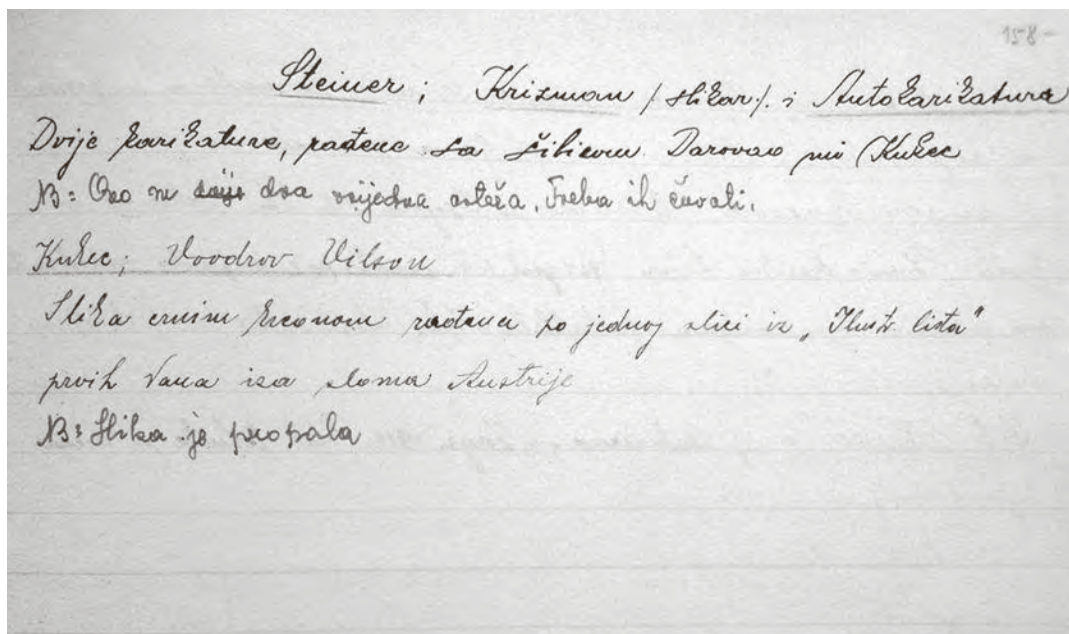 158-
Steiner; Krizman /slikar/. i Autokarikatura
Dvije karikature, rađene sa šibicom. Darovao mi Kukec
NB: Ovo su dvije dva vrijedna crteža. Treba ih čuvati.
Kukec; Voodrov Vilson
Slika crnim kreonom rađena po jednoj slici iz „Ilustr. lista"
prvih dana iza sloma Austrije
NB: Slika je propala